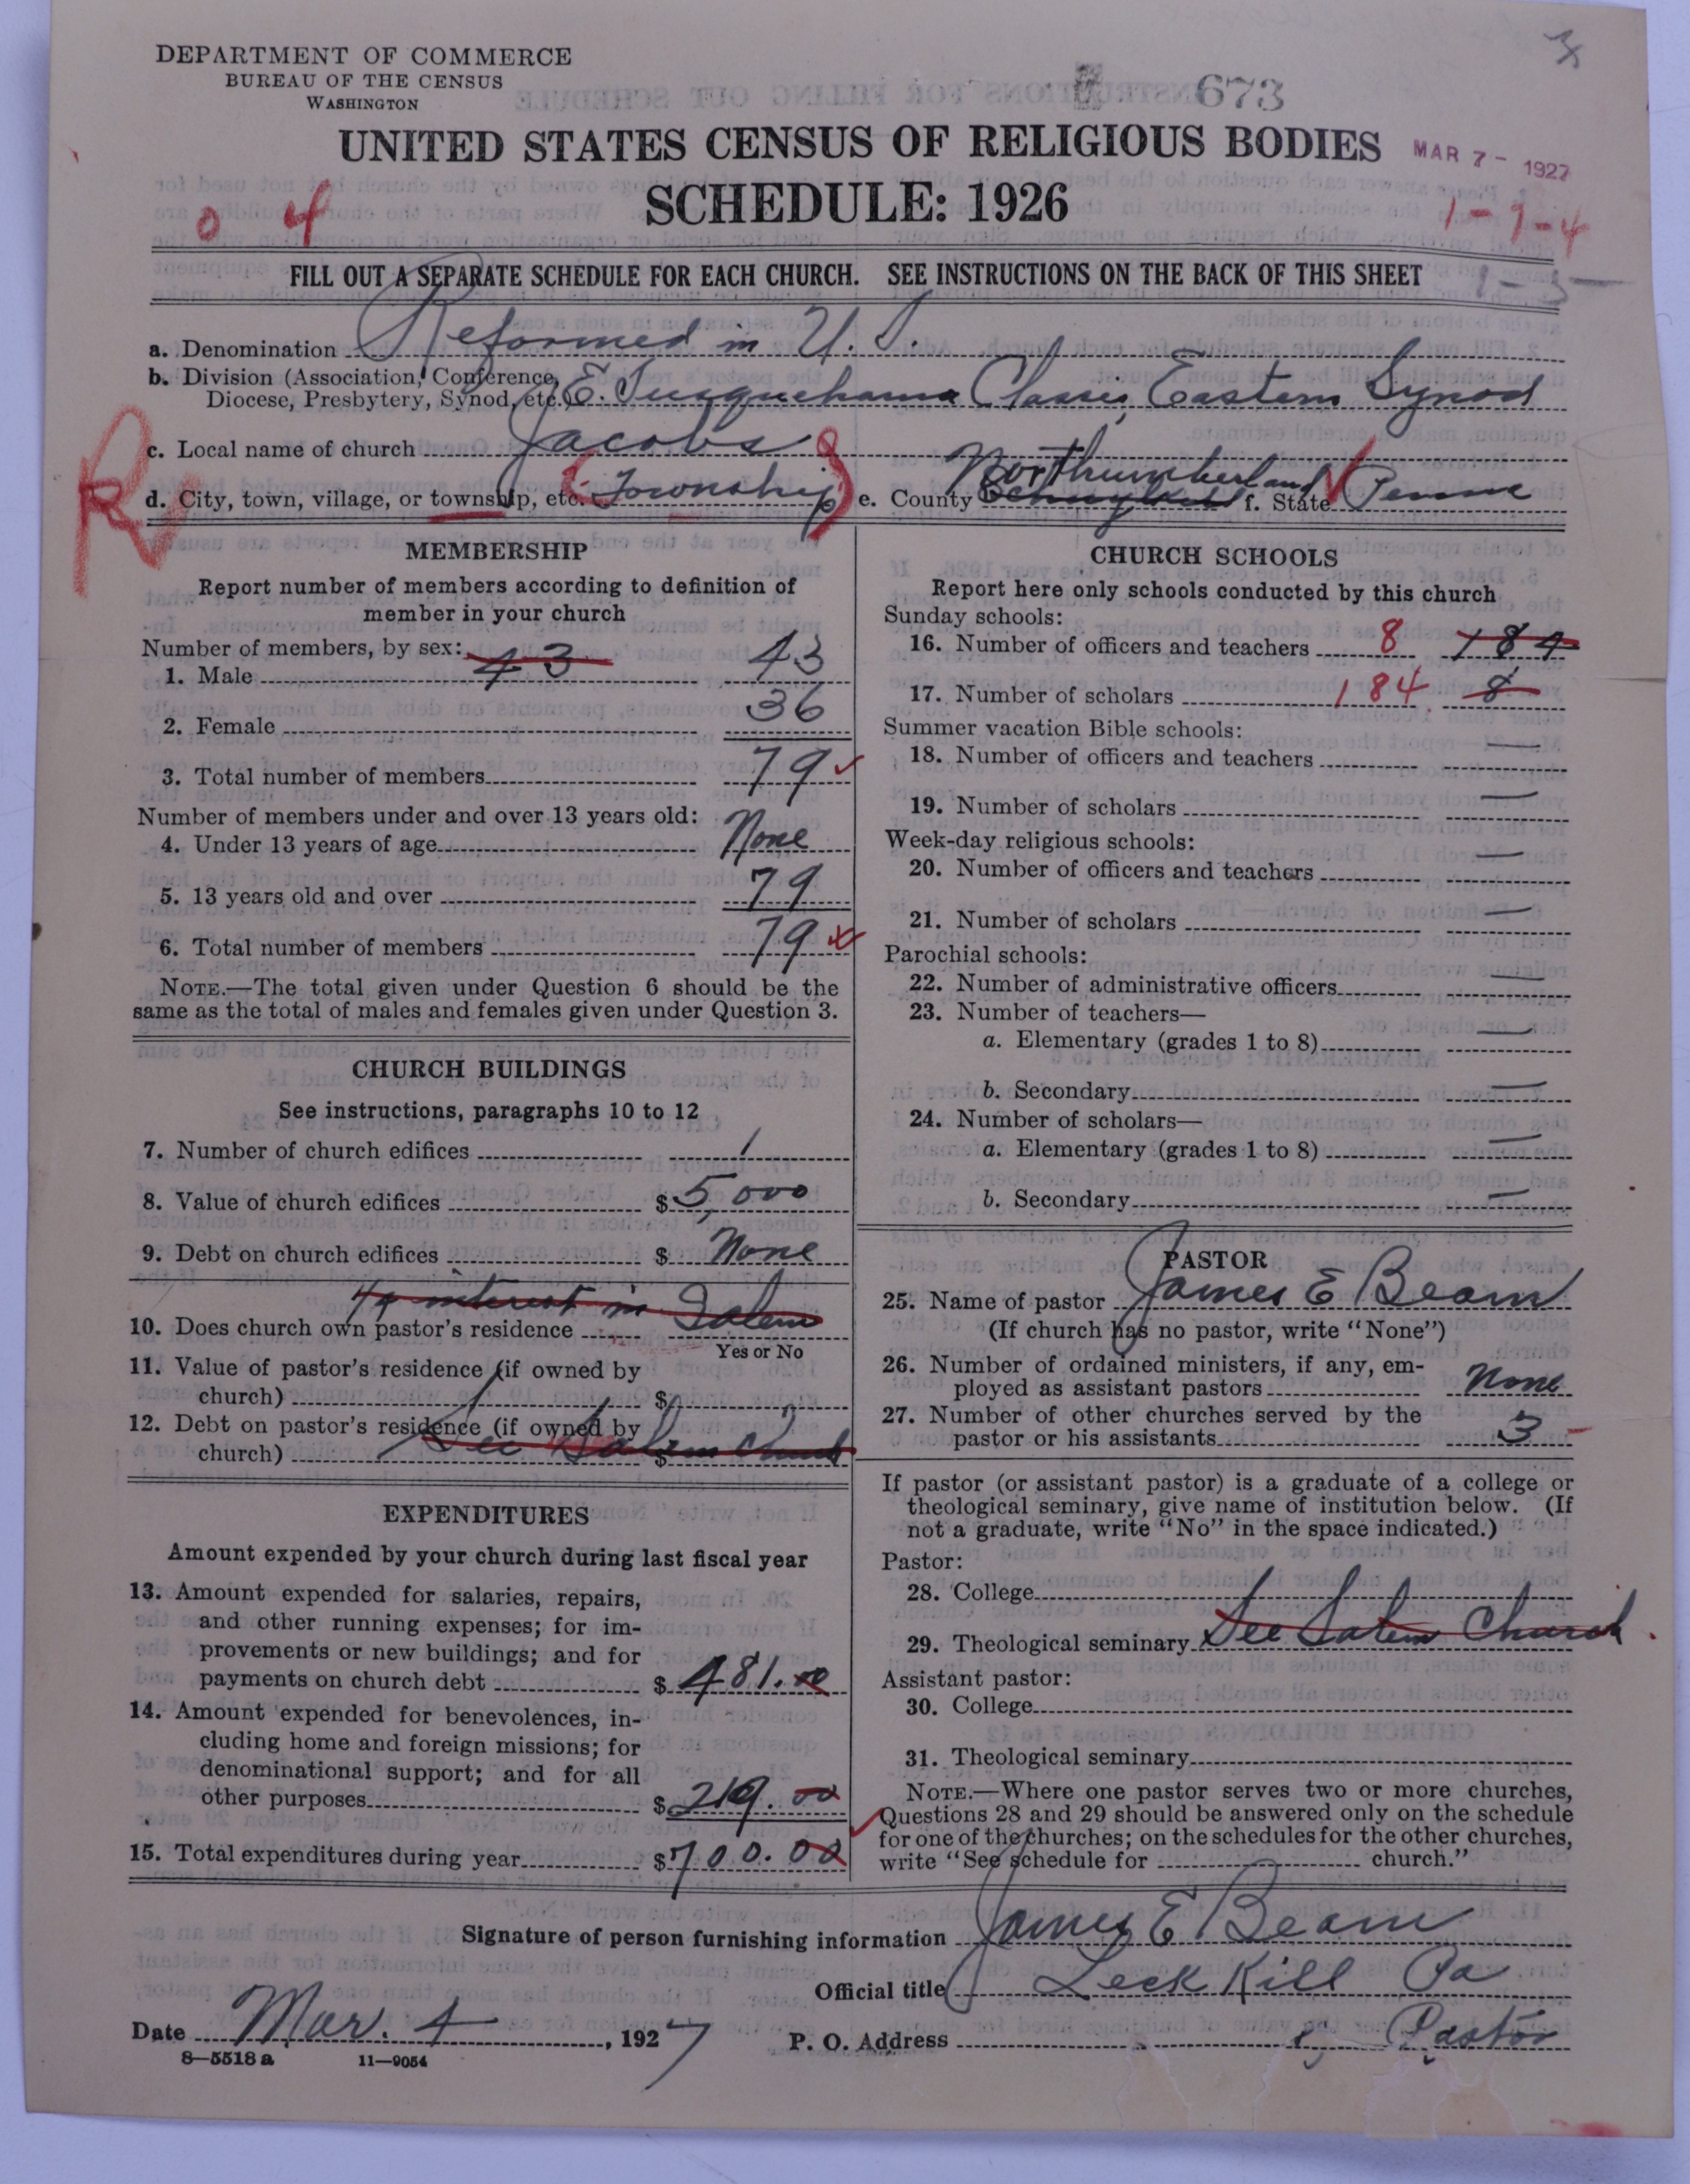 DEPARTMENT OF COMMERCE
BUREAU OF THE CENSUS
WASHINGTON
673
UNITED STATES CENSUS OF RELIGIOUS BODIES
MAR 7 - 1927
SCHEDULE: 1926
0 4
1-9-4
FILL OUT A SEPARATE SCHEDULE FOR EACH CHURCH. SEE INSTRUCTIONS ON THE BACK OF THIS SHEET
a. Denomination Reformed in U. S.
b. Division (Association, Conference,
Diocese, Presbytery, Synod, etc.) E. Susquehanna Classis, Eastern Synod
c. Local name of church Jacobs
R
d. City, town, village, or township, etc. Township e. County Northumberland f. State Penna
MEMBERSHIP
Report number of members according to definition of
member in your church
Number of members, by sex:
1. Male 43 43
2. Female 36
3. Total number of members 79
Number of members under and over 13 years old:
4. Under 13 years of age None
5. 13 years old and over 79
6. Total number of members 79
NOTE.—The total given under Question 6 should be the
same as the total of males and females given under Question 3.
CHURCH BUILDINGS
See instructions, paragraphs 10 to 12
7. Number of church edifices 1
8. Value of church edifices $ 5,000
9. Debt on church edifices $ None
1/4 interest in Salem
10. Does church own pastor's residence
Yes or No
11. Value of pastor's residence (if owned by
church) $
12. Debt on pastor's residence (if owned by
church) $ See Salem Church
EXPENDITURES
Amount expended by your church during last fiscal year
13. Amount expended for salaries, repairs,
and other running expenses; for im-
provements or new buildings; and for
payments on church debt $ 481.00
14. Amount expended for benevolences, in-
cluding home and foreign missions; for
denominational support; and for all
other purposes $ 219.00
15. Total expenditures during year $ 700.00
CHURCH SCHOOLS
Report here only schools conducted by this church
Sunday schools:
16. Number of officers and teachers 8 184
17. Number of scholars 184 8
Summer vacation Bible schools:
18. Number of officers and teachers —
19. Number of scholars —
Week-day religious schools:
20. Number of officers and teachers —
21. Number of scholars —
Parochial schools:
22. Number of administrative officers —
23. Number of teachers—
a. Elementary (grades 1 to 8) —
b. Secondary —
24. Number of scholars—
a. Elementary (grades 1 to 8) —
b. Secondary —
PASTOR
25. Name of pastor James E Beam
(If church has no pastor, write "None")
26. Number of ordained ministers, if any, em-
ployed as assistant pastors None
27. Number of other churches served by the
pastor or his assistants 3
If pastor (or assistant pastor) is a graduate of a college or
theological seminary, give name of institution below. (If
not a graduate, write "No" in the space indicated.)
Pastor:
28. College
29. Theological seminary See Salem Church
Assistant pastor:
30. College
31. Theological seminary
NOTE.—Where one pastor serves two or more churches,
Questions 28 and 29 should be answered only on the schedule
for one of the churches; on the schedules for the other churches,
write "See schedule for church."
Signature of person furnishing information James E Beam
Official title Leck Kill Pa
Date Mar. 4, 1927 P. O. Address Pastor
8—5518 a 11—9054